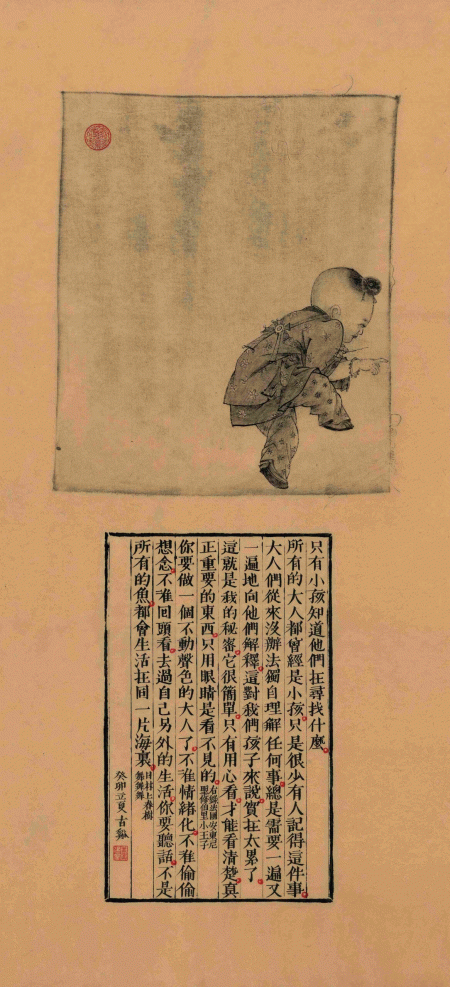 只有小孩知道他們在尋找什麼
所有的大人都曾經是小孩只是很少有人記得這件事
大人們從來沒辦法獨自理解任何事總是需要一遍又
一遍地向他們解釋這對我們孩子來說實在太累了
這就是我的秘密它很簡單只有用心看才能看清楚真
正重要的東西只用眼睛是看不見的
右錄法國安東尼
聖修伯里小王子
你要做一個不動聲色的大人了不准情緒化不准偷偷
想念不准回頭看去過自己另外的生活你要聽話不是
所有的魚都會生活在同一片海裏
日村上春樹
舞舞舞
癸卯立夏古谿